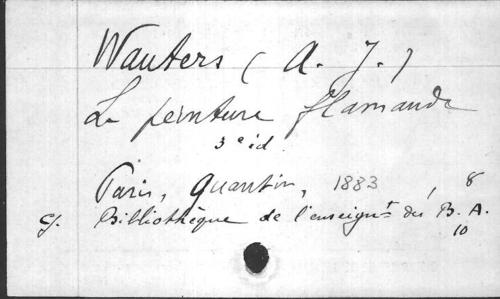 Wauters (A. J.)
La peinture flamande
3e éd.
Paris, Quantin, 1883, 8
Bibliothèque de l'enseignt des B. A.
10